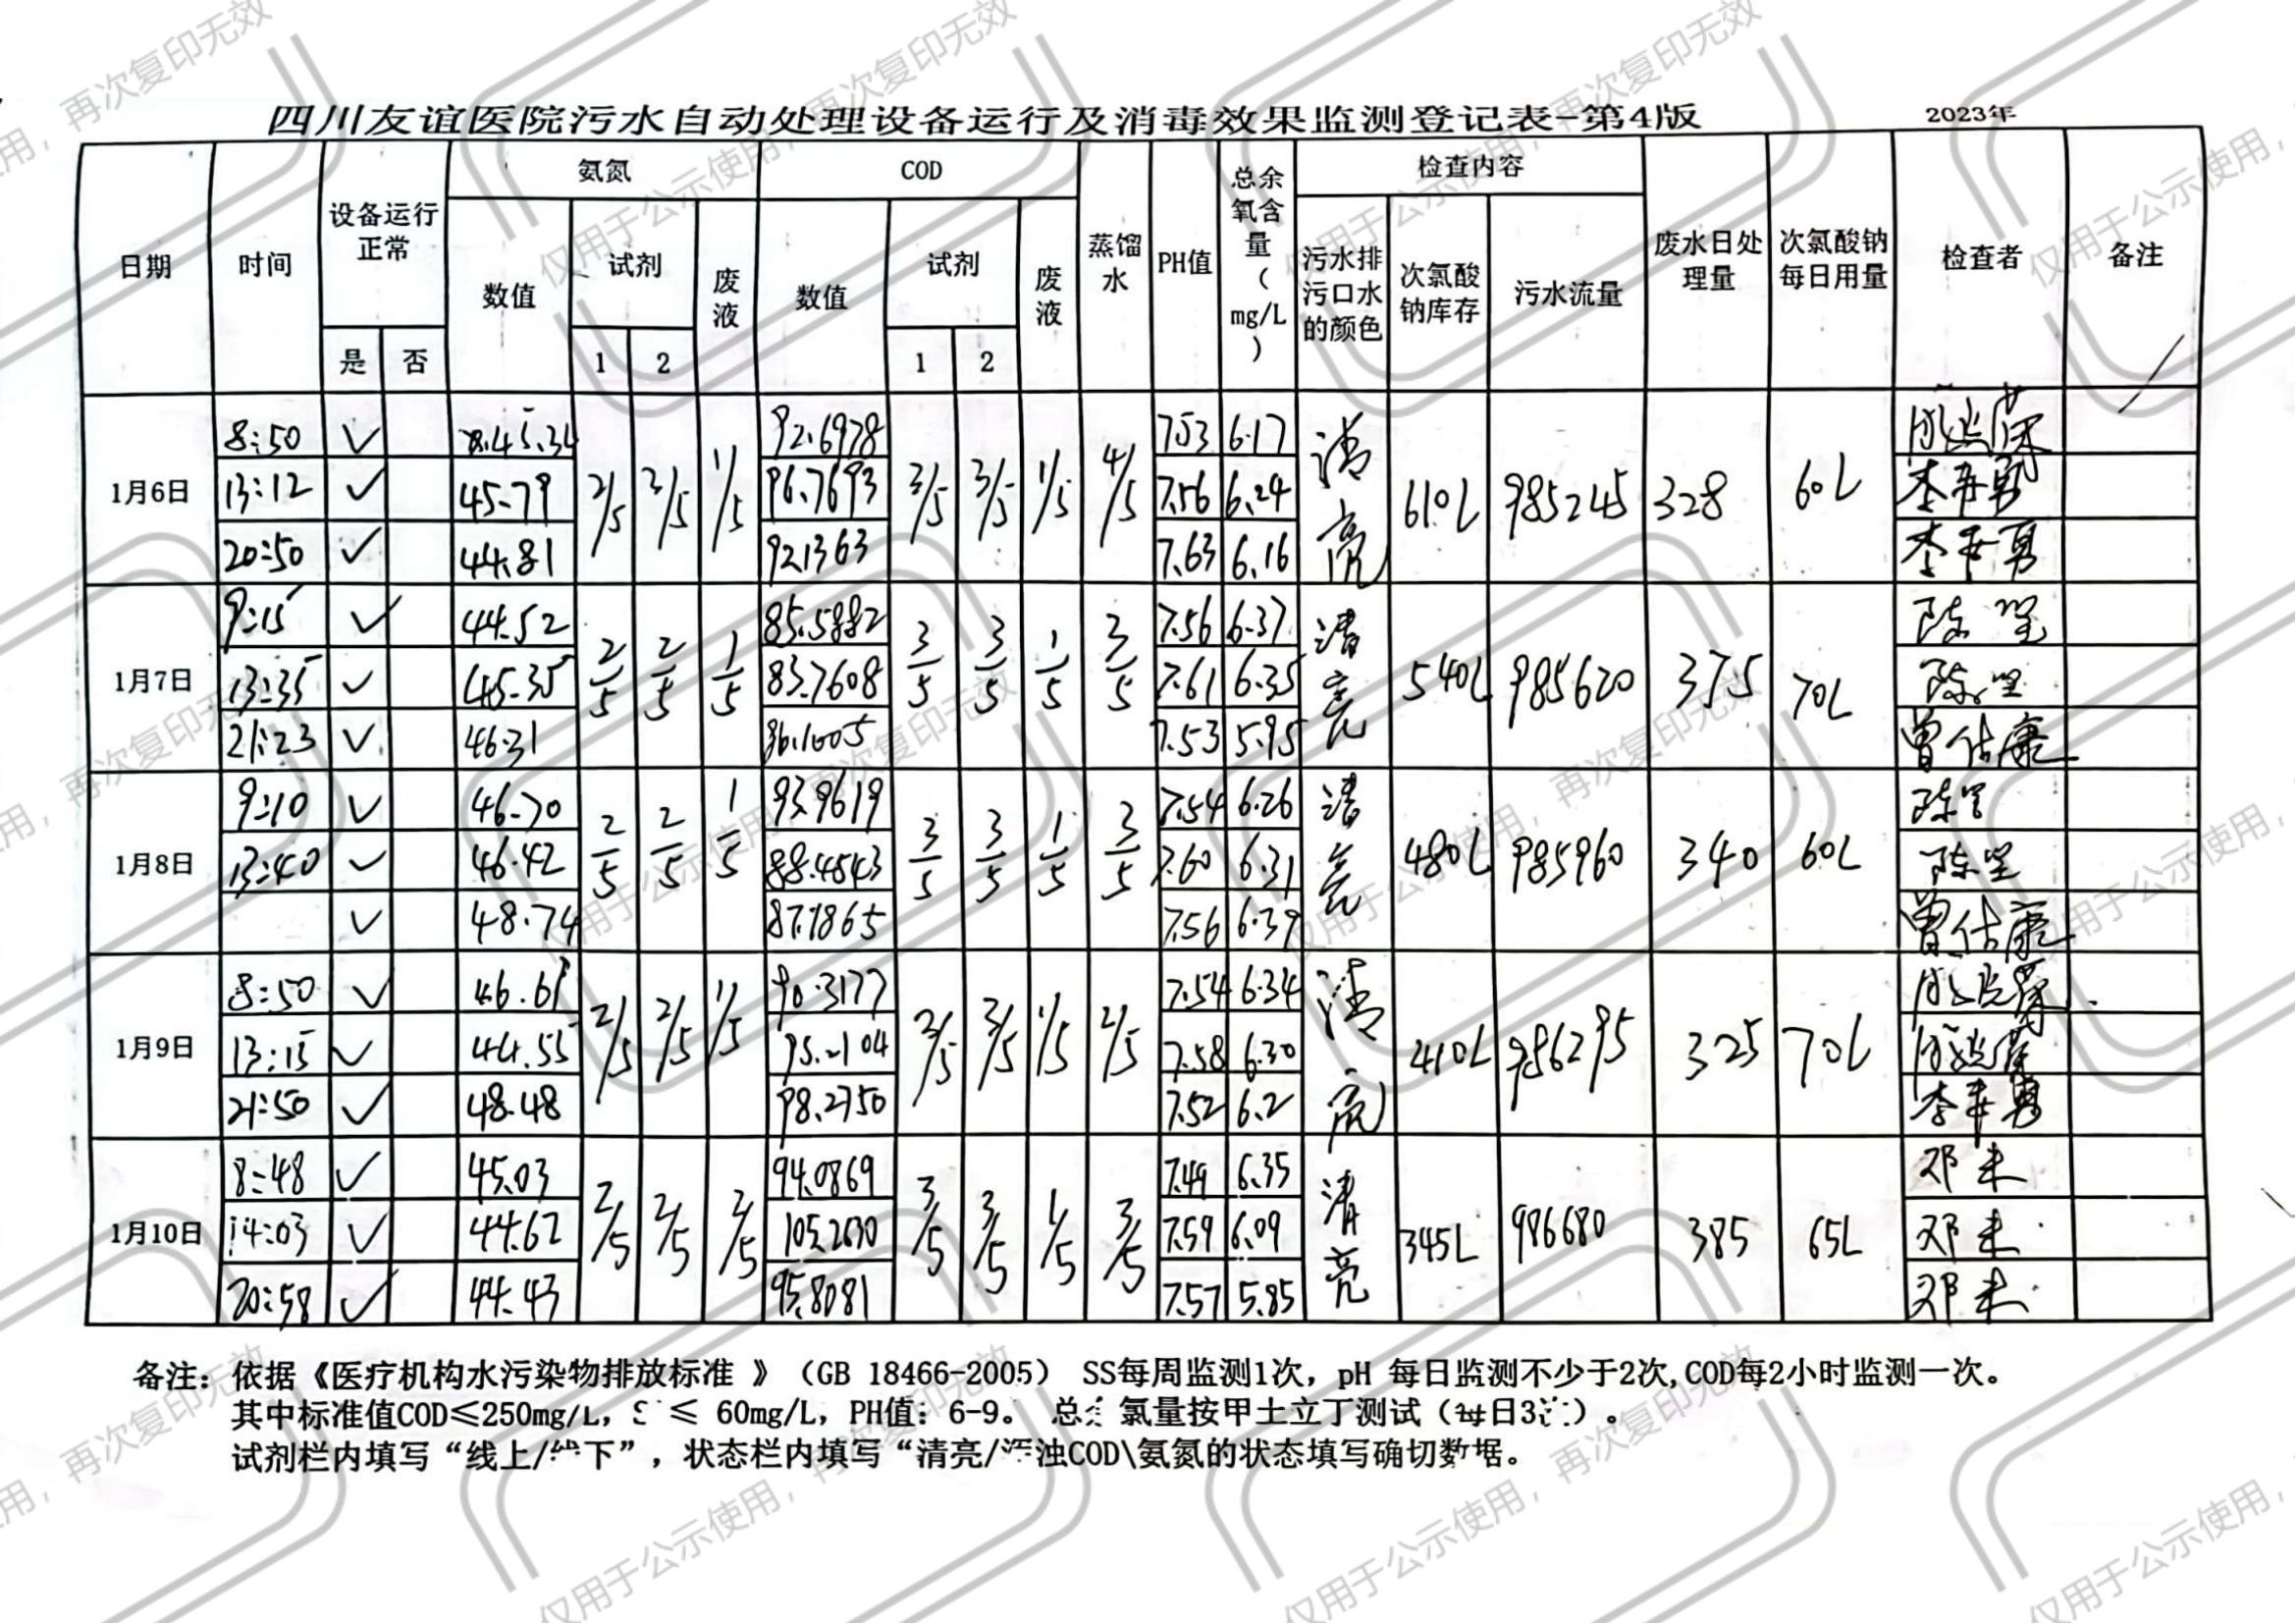 四川友谊医院污水自动处理设备运行及消毒效果监测登记表-第4版 2023年
日期 时间 设备运行正常 氨氮 COD 蒸馏水 PH值 总余氧含量(mg/L) 检查内容 废水日处理量 次氯酸钠每日用量 检查者 备注
数值 试剂 废液 数值 试剂 废液 污水排污口水的颜色 次氯酸钠库存 污水流量
是 否 1 2 1 2
1月6日 2/5 2/5 1/5 3/5 3/5 1/5 4/5 清亮 610L 985245 328 60L
8:50 ✓ 45.34 92.6978 7.53 6.17
13:12 ✓ 45.79 96.7693 7.56 6.24 李平勇
20:50 ✓ 44.81 92.1363 7.63 6.16 李平勇
1月7日 2/5 2/5 1/5 3/5 3/5 1/5 3/5 清亮 540L 985620 375 70L
9:15 ✓ 44.52 85.5882 7.56 6.37
13:35 ✓ 45.35 83.7608 7.61 6.35
21:23 ✓ 46.31 86.1005 7.53 5.95
1月8日 2/5 2/5 1/5 3/5 3/5 1/5 3/5 清亮 480L 985960 340 60L
9:10 ✓ 46.70 93.9619 7.54 6.26
13:40 ✓ 46.42 88.4543 7.60 6.31
✓ 48.74 87.1865 7.56 6.39
1月9日 2/5 2/5 1/5 3/5 3/5 1/5 2/5 清亮 410L 986295 325 70L
8:50 ✓ 46.61 90.3177 7.54 6.34
13:15 ✓ 44.55 95.2104 7.58 6.30
21:50 ✓ 48.48 98.2750 7.52 6.2 李平勇
1月10日 2/5 2/5 2/5 3/5 3/5 1/5 3/5 清亮 345L 986680 385 65L
8:48 ✓ 45.03 94.0869 7.49 6.35 邓未
14:03 ✓ 44.62 105.2630 7.59 6.09 邓未
20:58 ✓ 44.43 95.8081 7.57 5.85 邓未
备注：依据《医疗机构水污染物排放标准 》（GB 18466-2005） SS每周监测1次，pH 每日监测不少于2次,COD每2小时监测一次。
其中标准值COD≤250mg/L, ≤ 60mg/L, PH值：6-9。 总余氯量按甲土立丁测试（每日3次）。
试剂栏内填写“线上/线下”，状态栏内填写“清亮/浑浊COD\氨氮的状态填写确切数据。
仅用于公示使用，再次复印无效